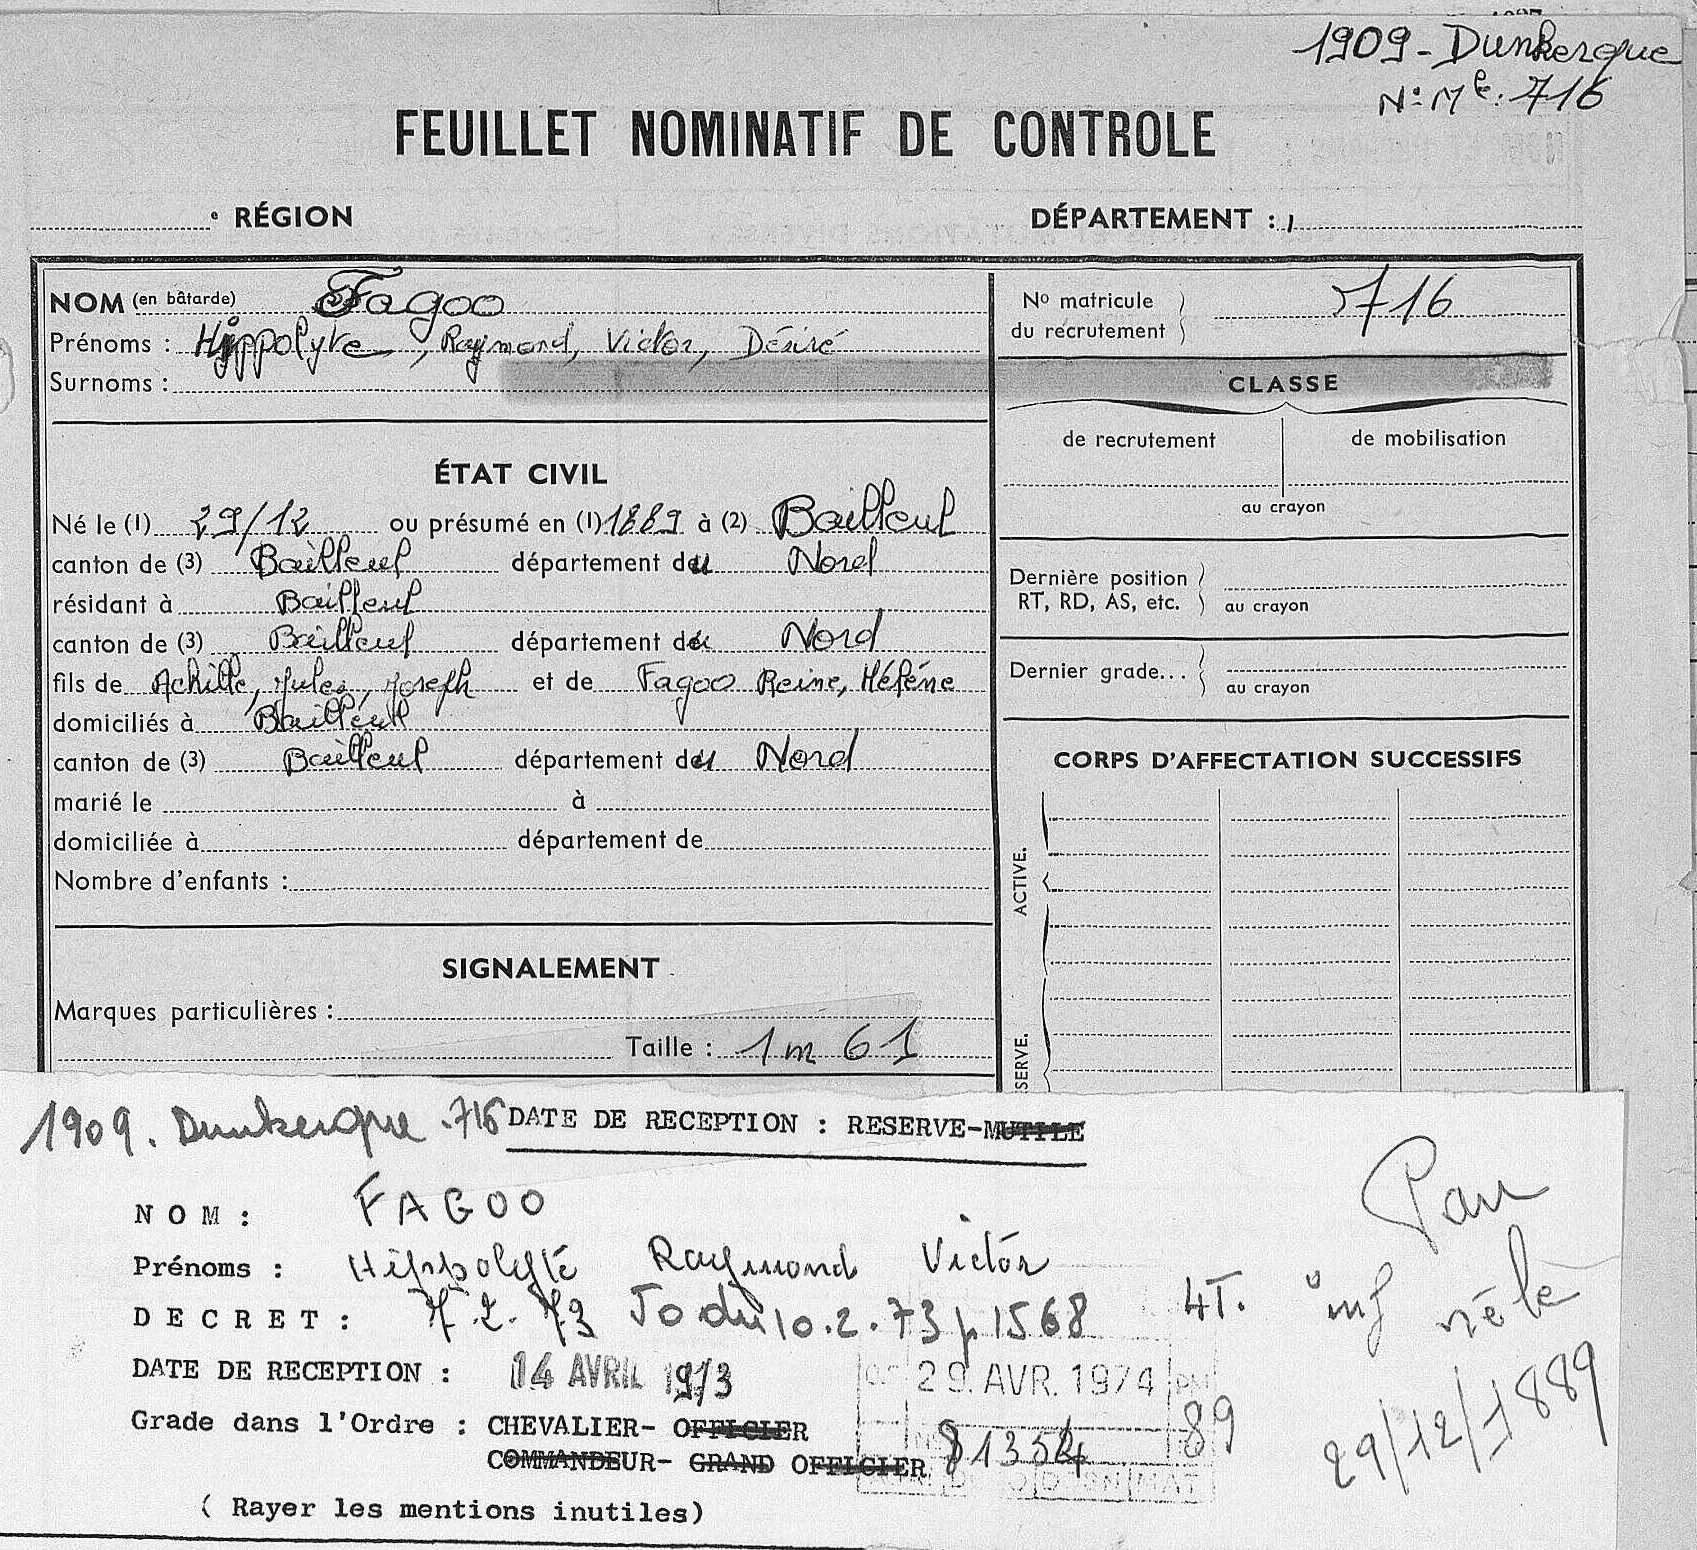 1909 - Dunkerque
N° Mle: 716
FEUILLET NOMINATIF DE CONTROLE
e RÉGION
DÉPARTEMENT :
NOM (en bâtarde) Fagoo
Prénoms : Hippolyte, Raymond, Victor, Désiré
Surnoms :
No matricule du recrutement 716
CLASSE
de recrutement
de mobilisation
au crayon
ÉTAT CIVIL
Né le (1) 29/12 ou présumé en (1) 1889 à (2) Bailleul
canton de (3) Bailleul département du Nord
résidant à Bailleul
canton de (3) Bailleul département du Nord
fils de Achille, Jules, Joseph et de Fagoo Reine, Hélène
domiciliés à Bailleul
canton de (3) Bailleul département du Nord
marié le à
domiciliée à département de
Nombre d'enfants :
Dernière position
RT, RD, AS, etc. au crayon
Dernier grade...
au crayon
CORPS D'AFFECTATION SUCCESSIFS
ACTIVE.
SERVE.
SIGNALEMENT
Marques particulières :
Taille : 1m 61
1909. Dunkerque. 716 DATE DE RECEPTION : RESERVE-MUTILE
NOM : FAGOO
Prénoms : Hippolyte Raymond Victor
DECRET : 7.2.73 JO du 10.2.73 p 1568
DATE DE RECEPTION : 14 AVRIL 1973
29. AVR. 1974
Grade dans l'Ordre : CHEVALIER- OFFICIER
COMMANDEUR- GRAND OFFICIER
81354
89
( Rayer les mentions inutiles)
4T.
né le
29/12/1889